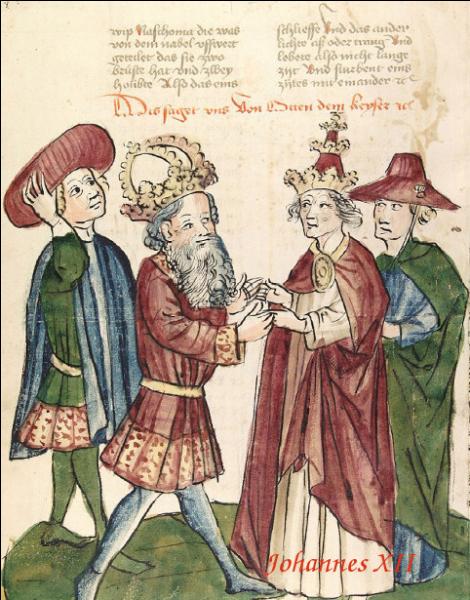 wip Naschoma die was
von dem nabel vffwert
geteilet das sie zwo
brüste hat vnd zwey
houbte Also das eins
schlieffe vnd das ander
lichte aß oder trang vnd
lebete also nicht lange
zijt vnd sturbent eins
zijtes mit einander ꝛc
Dis saget vns von Otten dem keyser ꝛc
Johannes XII